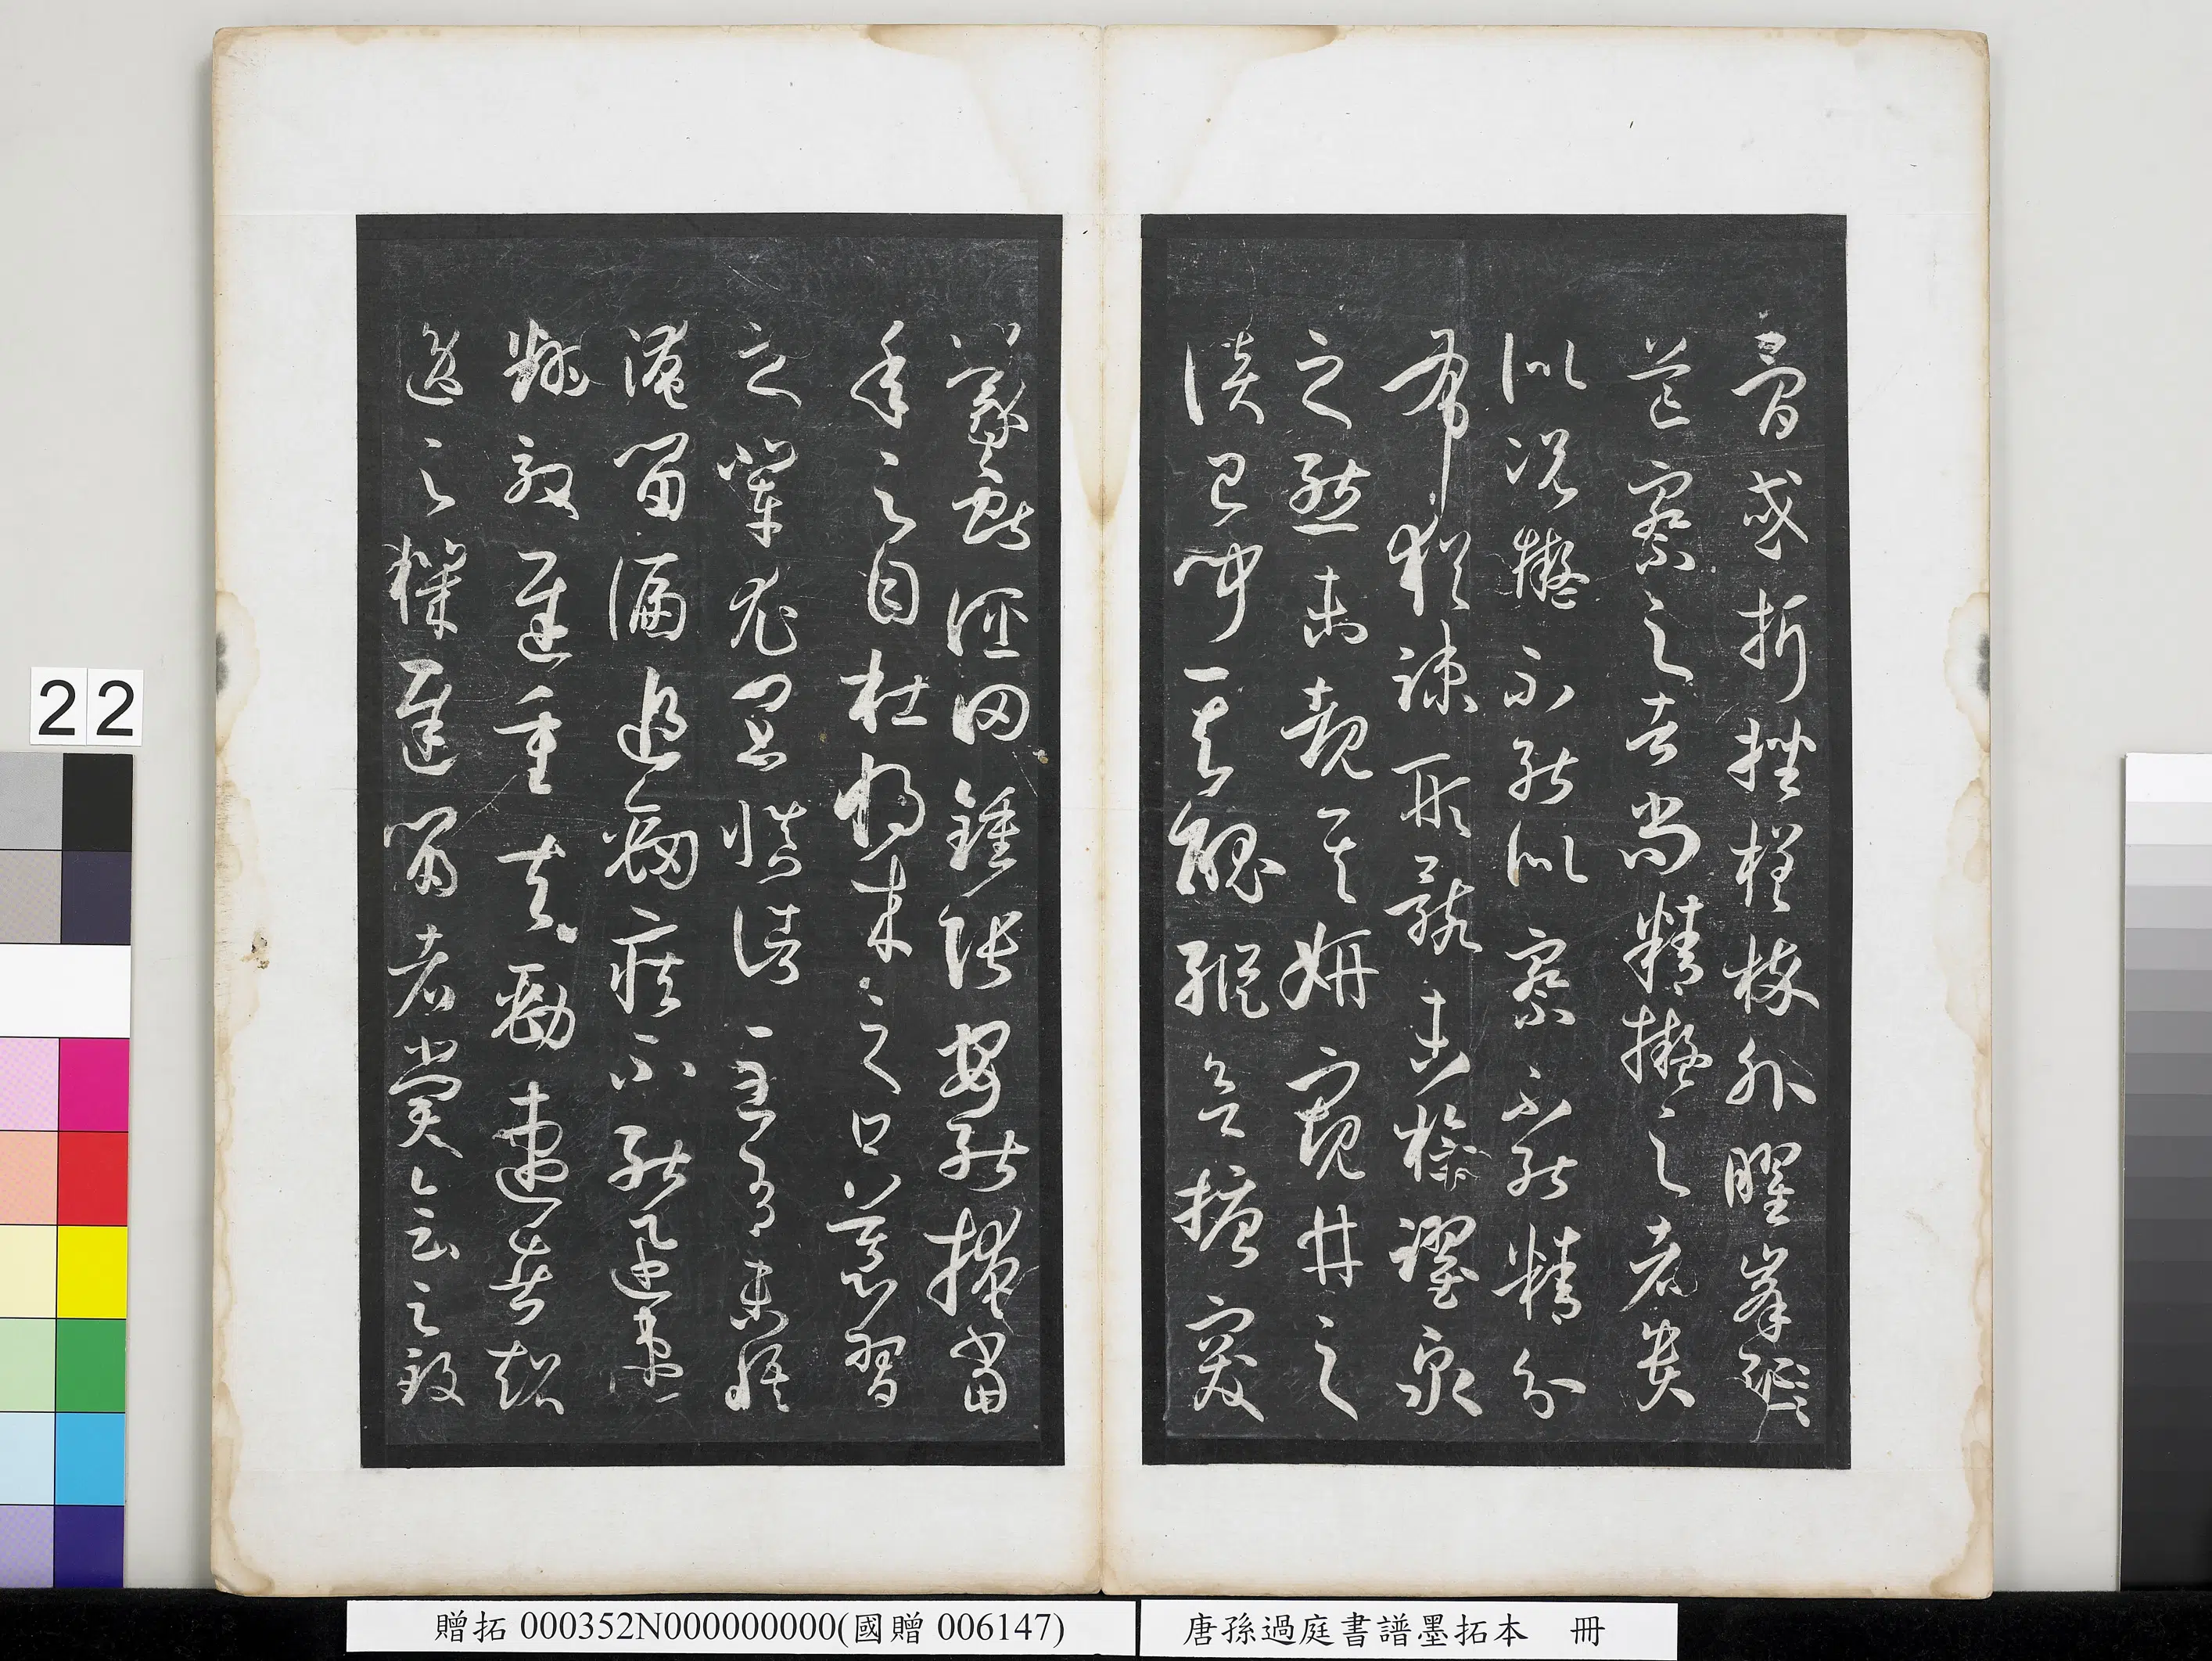 骨或折挫槎枿外曜峯
芒察之者尚精擬之者貴
似況擬不能似察不能精分
布猶疎形骸未檢躍泉
之態未覩其妍窺井之
談已聞其醜縱欲搪突
羲獻誣罔鍾張安能掩當
年之目杜將來之口慕習
之輩尤宜慎諸至有未悟
淹留偏追勁疾不能迅速
翻效遲重夫勁速者超
逸之機遲留者賞會之致
22
贈拓 000352N000000000(國贈 006147)
唐孫過庭書譜墨拓本 冊